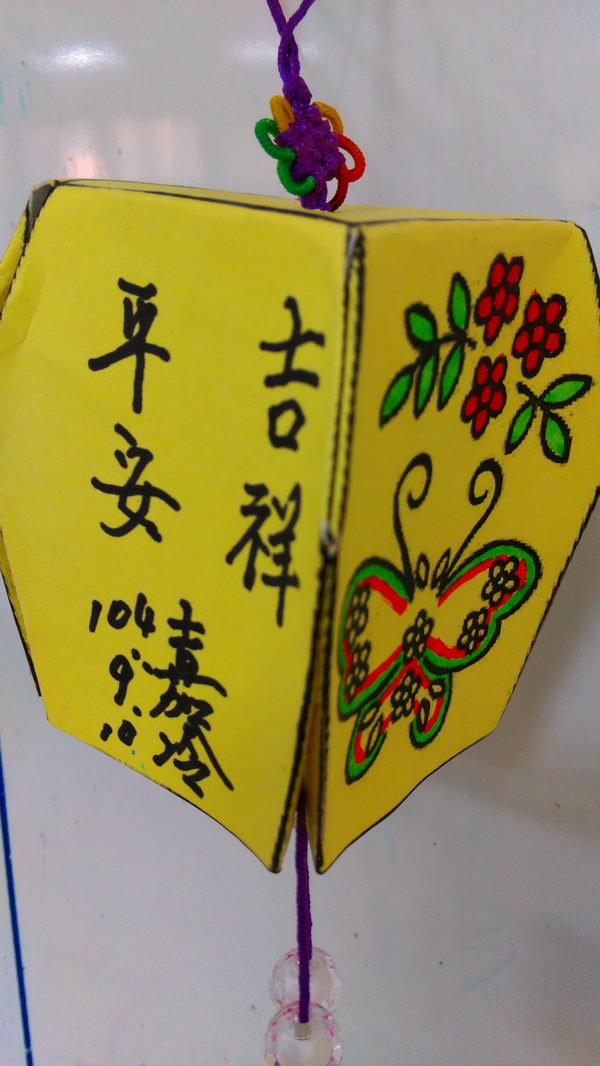 吉祥
平安
嘉玲
104.9.10.